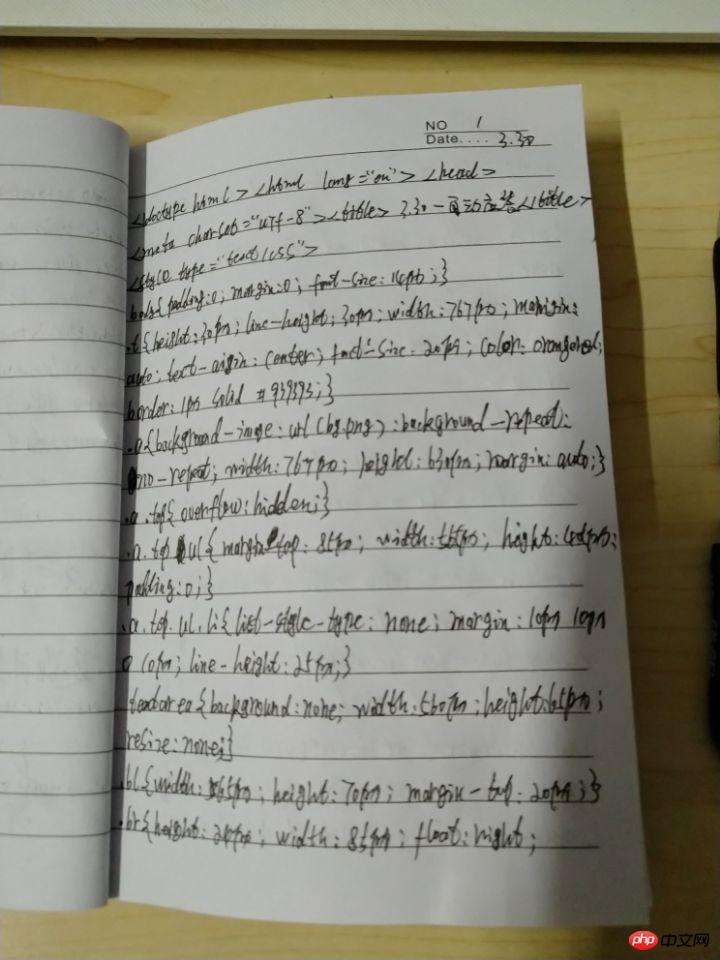 NO 1
Date.... 3.30
<!doctype html> <html lang="en"> <head>
<meta charset="utf-8"><title> 3.30-
<style type="text/css">
body{padding:0; margin:0; font-size:14px;}
.t{height:30px; line-height:30px; width:767px; margin:
auto; text-align:center; font-size:20px; color:orangered;
border:1px solid #939393;}
.a{background-image:url(bg.png);background-repeat:
no-repeat; width:767px; height:630px; margin:auto;}
.a .top{overflow:hidden;}
.a .top ul{margin-top:85px; width:px; height:px;
padding:0;}
.a .top ul li{list-style-type:none; margin:10px 10px
0 10px; line-height:25px;}
textarea{background:none; width:560px; height:65px;
resize:none;}
.bl{width:565px; height:70px; margin-top:20px;}
.br{height:px; width:85px; float:right;
php 中文网